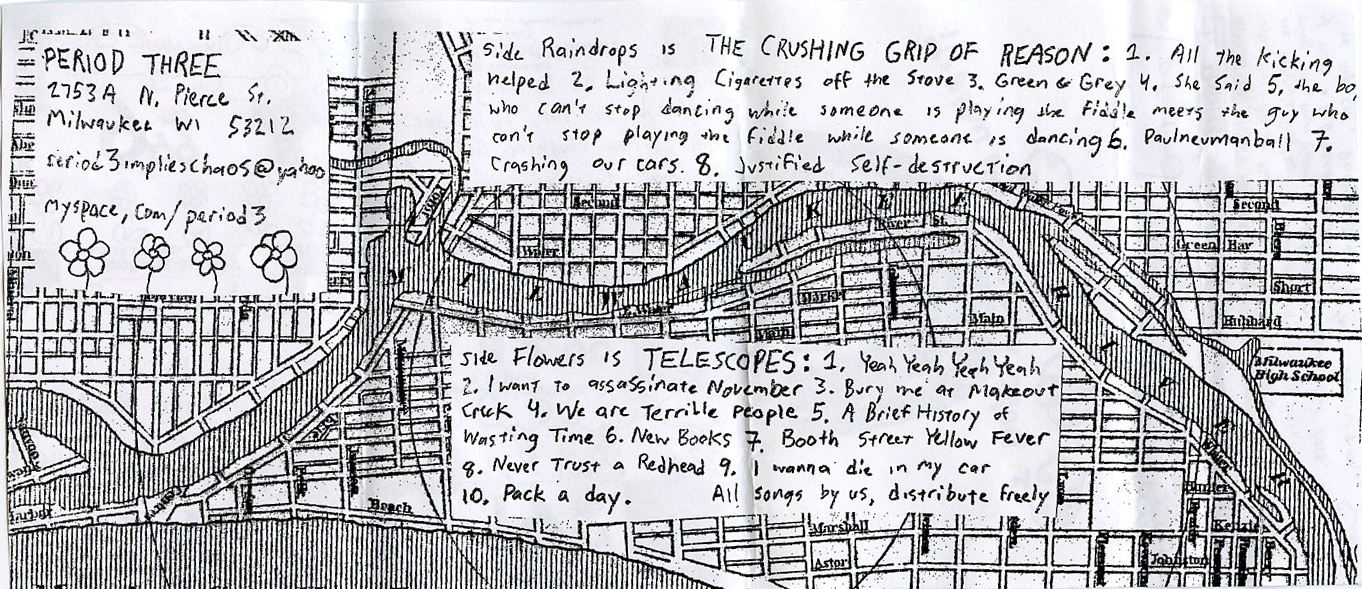 PERIOD THREE
2753A N. Pierce St.
Milwaukee WI 53212
period3implieschaos@yahoo
myspace.com/period3
Side Raindrops is THE CRUSHING GRIP OF REASON: 1. All the Kicking
Helped 2. Lighting Cigarettes off the Stove 3. Green & Grey 4. She Said 5. the bo
who can't stop dancing while someone is playing the fiddle meets the guy who
can't stop playing the fiddle while someone is dancing 6. Paulneumanball 7.
Crashing our cars. 8. Justified Self-destruction
Side Flowers is TELESCOPES: 1. Yeah Yeah Yeah Yeah
2. I want to assassinate November 3. Bury me at Makeout
Creek 4. We are Terrible People 5. A Brief History of
Wasting Time 6. New Books 7. Booth Street Yellow Fever
8. Never Trust a Redhead 9. I wanna die in my car
10. Pack a day. All songs by us, distribute freely
Second
Second
River St.
Green Bay
Water
Short
Market
E. Water
Main
Main
Hubbard
M I L W A U K E E
R I V E R
Milwaukee
High School
Beach
Marshall
Astor
Johnston